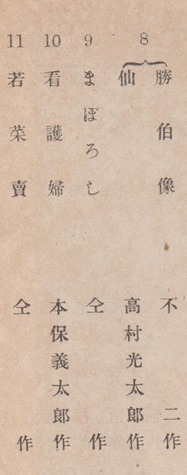 8 { 勝伯像 不二作
仙 高村光太郎作
9 まぼろし 仝作
10 看護婦 本保義太郎作
11 若菜賣 仝作